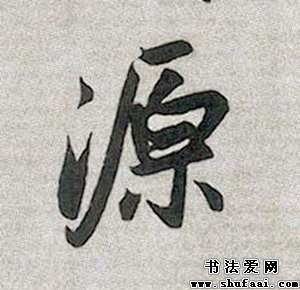 源
书法爱网
www.shufaai.com